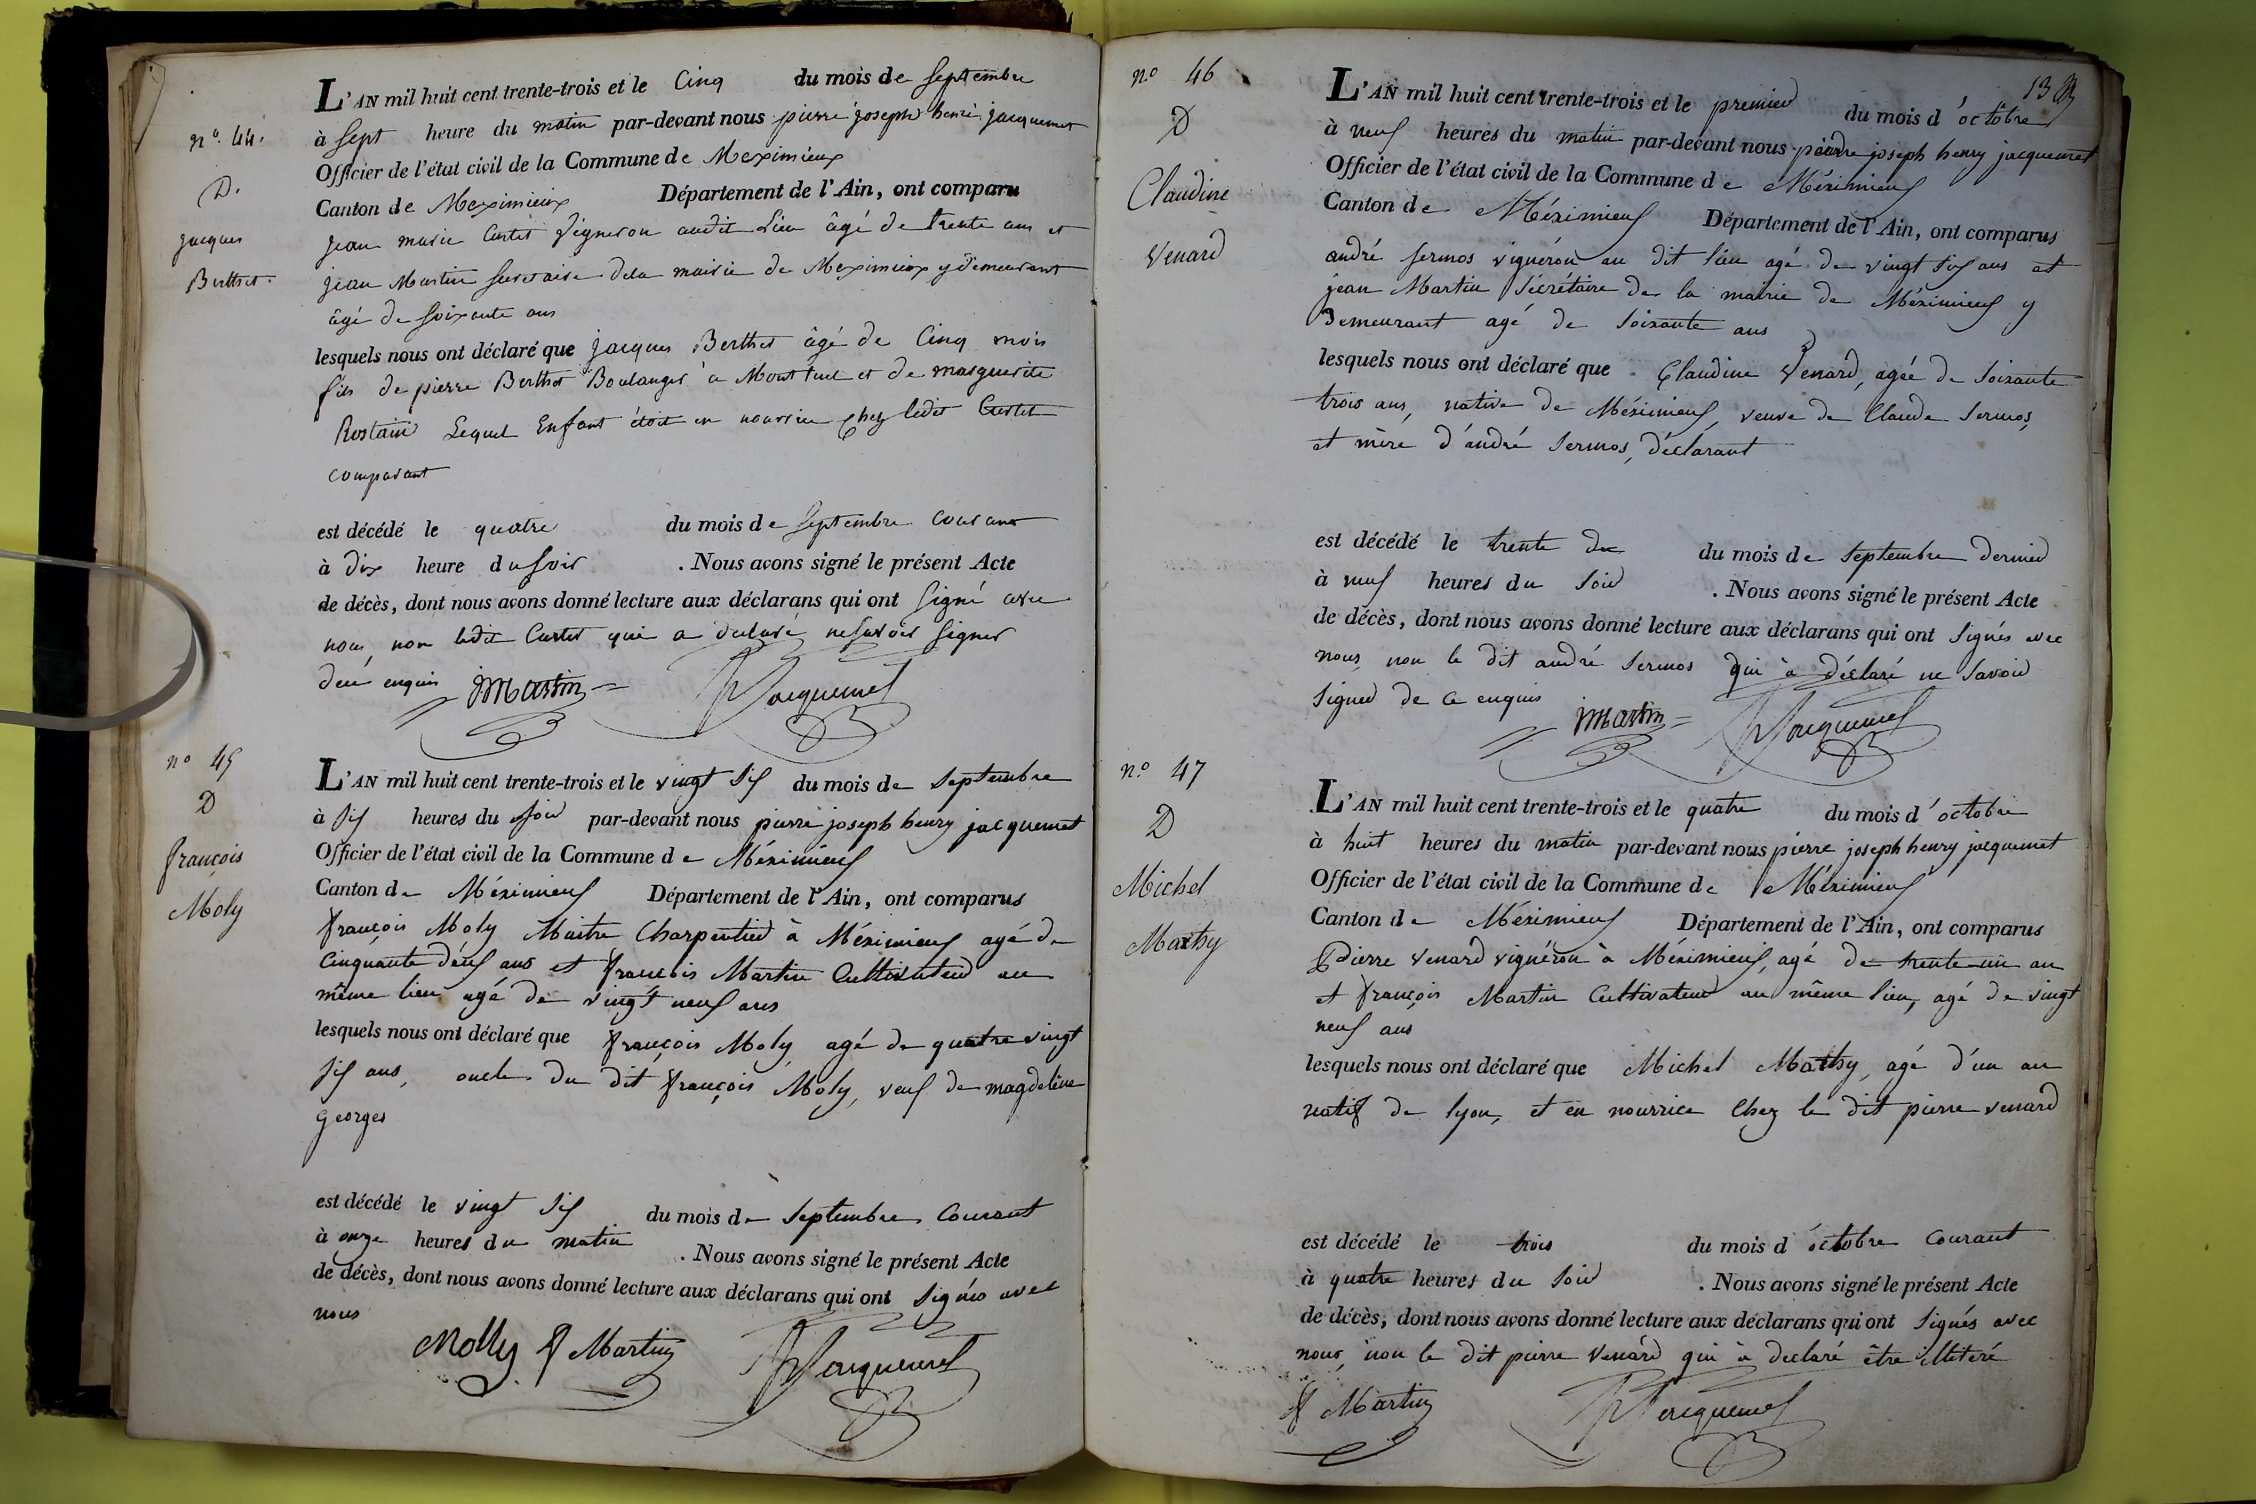 nº. 44.
D.
jacques
Berthet.
L'AN mil huit cent trente-trois et le Cinq du mois de Septembre
à Sept heure du matin par-devant nous pierre joseph henri jacquemet
Officier de l'état civil de la Commune de Meximieux
Canton de Meximieux Département de l'Ain, ont comparu
jean marie Curtet Vigneron audit Lieu âgé de trente ans et
jean Martin Secretaire dela mairie de Meximieux y demeurant
âgé de Soixante ans
lesquels nous ont déclaré que jacques Berthet âgé de Cinq mois
fils de pierre Berthet Boulanger à Montluel et de marguerite
Rostain Lequel Enfant étoit en nourrice chez ledit Curtet
comparant
est décédé le quatre du mois de Septembre courant
à dix heure du Soir . Nous avons signé le présent Acte
de décès, dont nous avons donné lecture aux déclarans qui ont Signé avec
nous, non ledit Curtet qui a declaré ne Savoir Signer
de ce enquis JMartin Jacquemet
nº 45
D
françois
Moly
L'AN mil huit cent trente-trois et le vingt Six du mois de Septembre
à Six heures du Soir par-devant nous pierre joseph henry jacquemet
Officier de l'état civil de la Commune de Méximieux
Canton de Méximieux Département de l'Ain, ont comparus
françois Moly Maitre Charpentier à Méximieux agé de
Cinquante deux ans et françois Martin Cultivateur au
même lieu agé de vingt neuf ans
lesquels nous ont déclaré que françois Moly agé de quatre vingt
Six ans, oncle du dit françois Moly, veuf de magdeleine
Georges
est décédé le vingt Six du mois de Septembre Courant
à onze heures du matin . Nous avons signé le présent Acte
de décès, dont nous avons donné lecture aux déclarans qui ont Signés avec
nous
Molly f Martin Jacquemet
13
nº 46
D
Claudine
Venard
L'AN mil huit cent trente-trois et le premier du mois d'octobre
à neuf heures du matin par-devant nous pierre joseph henry jacquemet
Officier de l'état civil de la Commune de Méximieux
Canton de Méximieux Département de l'Ain, ont comparus
andré Sermos vignéron au dit lieu agé de vingt Six ans et
jean Martin Sécrétaire de la mairie de Méximieux y
demeurant agé de Soixante ans
lesquels nous ont déclaré que Claudine Venard, agée de Soixante
trois ans, native de Méximieux, veuve de Claude Sermos,
et mère d'andré Sermos, déclarant
est décédé le trente du du mois de Septembre dernier
à neuf heures du Soir . Nous avons signé le présent Acte
de décès, dont nous avons donné lecture aux déclarans qui ont Signés avec
nous non le dit andré Sermos qui à déclaré ne Savoir
Signer de ce enquis JMartin Jacquemet
nº 47
D
Michel
Mathy
L'AN mil huit cent trente-trois et le quatre du mois d'octobre
à huit heures du matin par-devant nous pierre joseph henry jacquemet
Officier de l'état civil de la Commune de Méximieux
Canton de Méximieux Département de l'Ain, ont comparus
Pierre Venard vignéron à Méximieux, agé de trente un an
et françois Martin Cultivateur au même lieu, agé de vingt
neuf ans
lesquels nous ont déclaré que Michel Mathy, agé d'un an
natif de lyon, et en nourrice Chez le dit pierre venard
est décédé le trois du mois d'octobre Courant
à quatre heures du Soir . Nous avons signé le présent Acte
de décès, dont nous avons donné lecture aux déclarans qui ont Signés avec
nous, non le dit pierre Venard qui à declaré être illitéré
f Martin Jacquemet